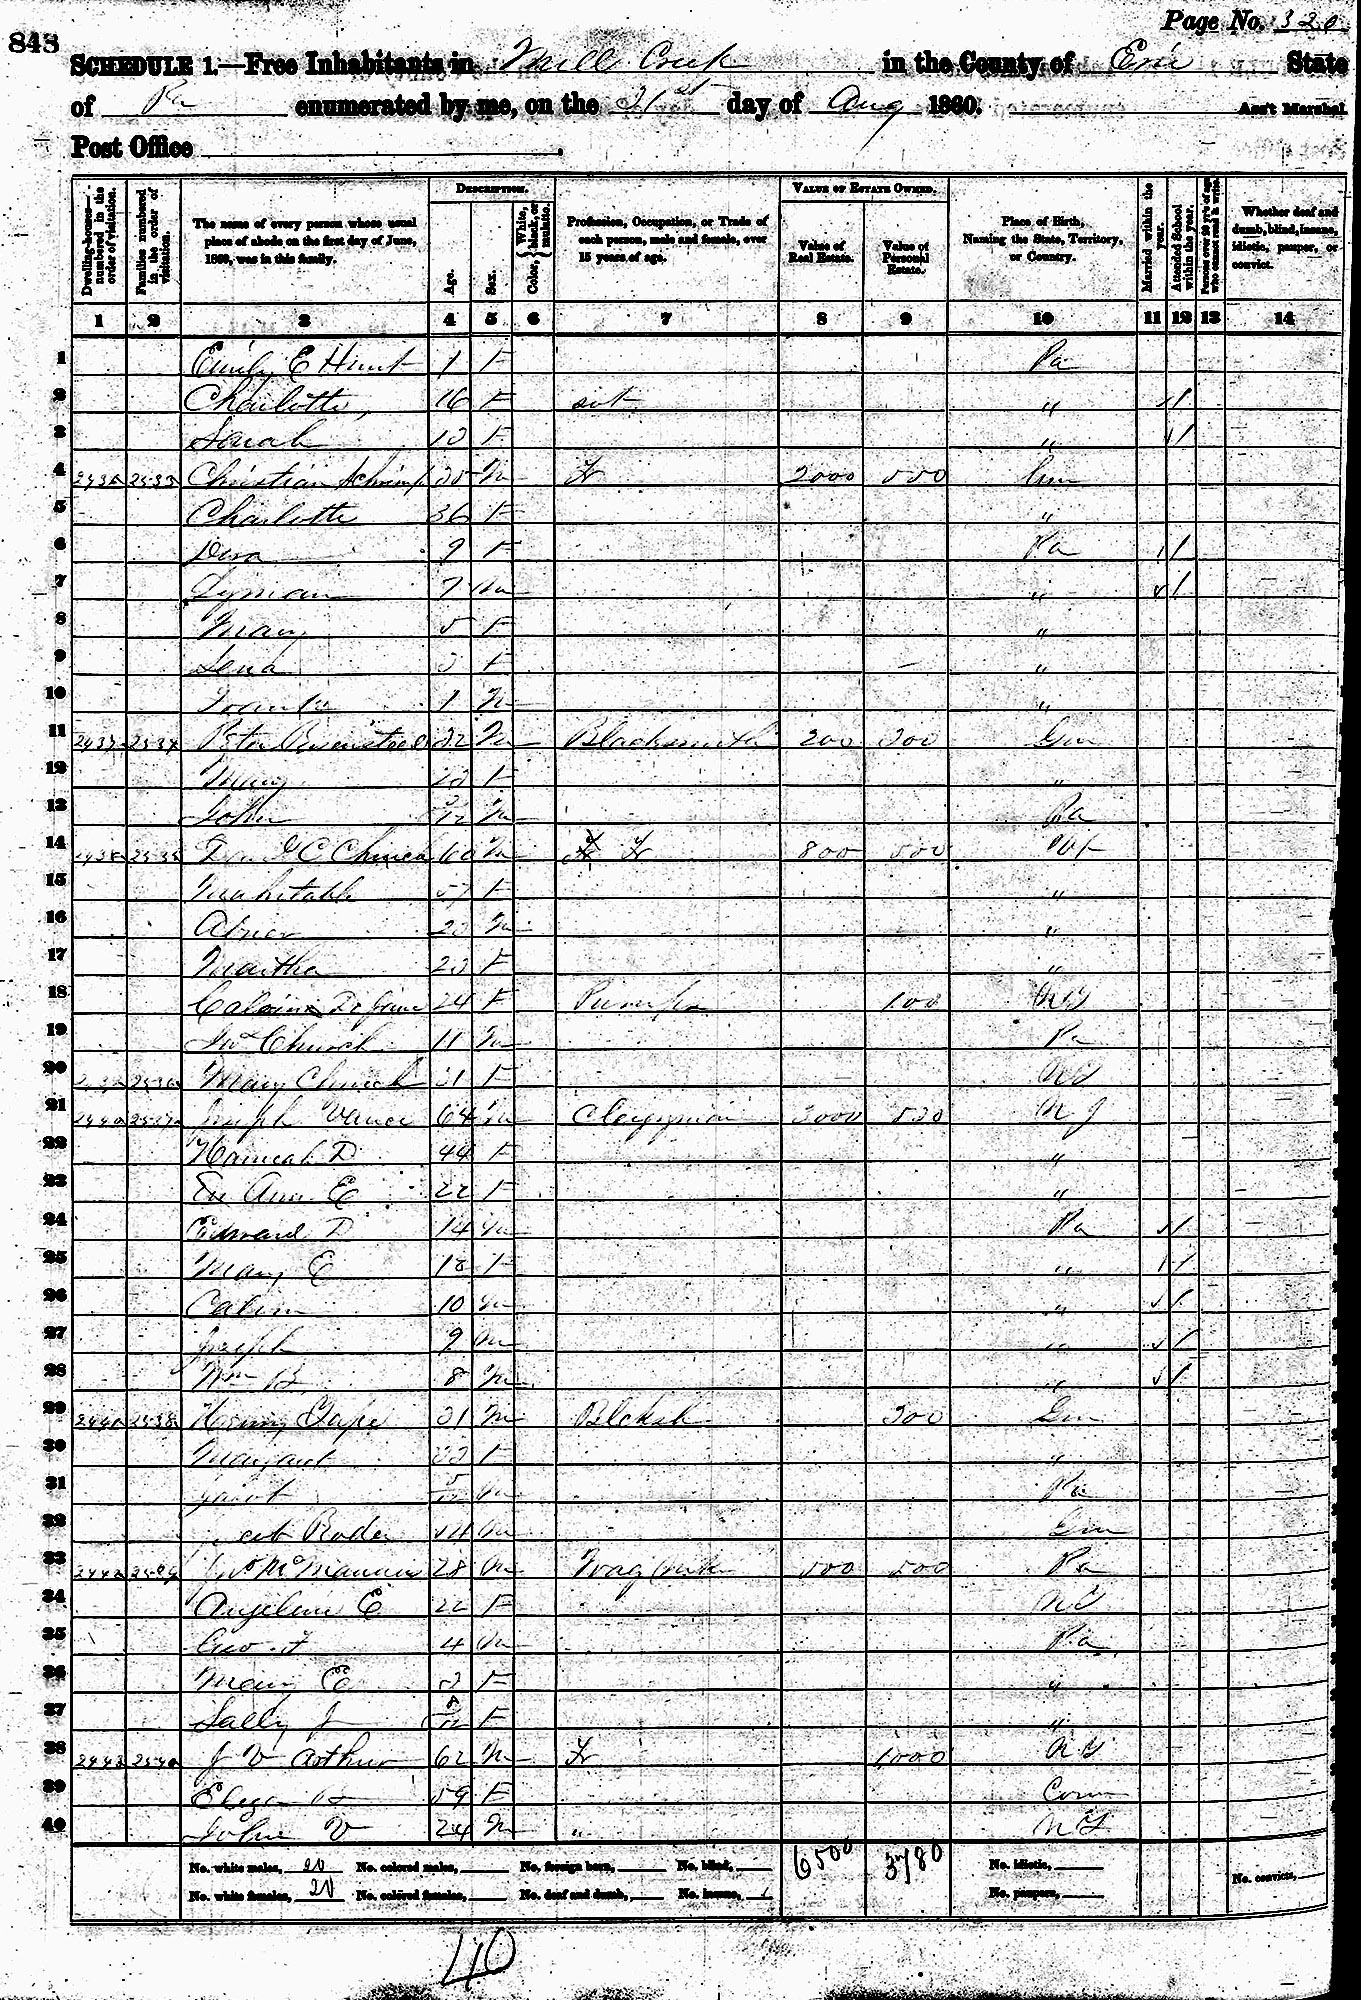 Page No. 320
848
SCHEDULE 1.—Free Inhabitants in Mill Creek in the County of Erie State
of Pa enumerated by me, on the 21st day of Aug 1860. Ass't Marshal.
Post Office
Dwelling-houses—numbered in the order of visitation.
Families numbered in the order of visitation.
The name of every person whose usual place of abode on the first day of June, 1860, was in this family.
DESCRIPTION.
Age.
Sex.
Color, White, black, or mulatto.
Profession, Occupation, or Trade of each person, male and female, over 15 years of age.
VALUE OF ESTATE OWNED.
Value of Real Estate.
Value of Personal Estate.
Place of Birth, Naming the State, Territory, or Country.
Married within the year.
Attended School within the year.
Persons over 20 y'rs of age who cannot read & write.
Whether deaf and dumb, blind, insane, idiotic, pauper, or convict.
1 2 3 4 5 6 7 8 9 10 11 12 13 14
1 Emily E Hunt 1 F Pa
2 Charlotte 16 F " /
3 Sarah 13 F " /
4 2533 Christian M Fr 2000 550 Ger
5 Charlotte 36 F "
6 9 F Pa /
7 Lyman 7 M " /
8 Mary 5 F "
9 Lena 3 F "
10 1 M "
11 2437 2534 Peter 32 M Blacksmith 200 300 Ger
12 Mary 23 F "
13 John /12 M Pa
14 2438 2535 C Church 60 M Fr 800 500
15 Mahitable 57 F "
16 Abner M "
17 Martha 23 F "
18 24 F 100 NY
19 Church 11 M Pa
20 2536 Mary Church 31 F NY
21 2440 2537 Joseph Vance 64 M Clergyman 3000 530 N J
22 Hannah D 44 F "
23 Ann E 22 F "
24 Edward D 14 M Pa /
25 Mary E 18 F " /
26 Calvin 10 M " /
27 Joseph 9 M " /
28 Wm B 8 M " /
29 2441 2538 Henry 31 M Blcksh 300 Ger
30 Margaret 33 F "
31 Jacob 5/12 M Pa
32 M Ger
33 2442 2539 McMannus 28 M 500 500 Pa
34 Angeline E 22 F NY
35 Geo 4 M Pa
36 Mary E 3 F "
37 Sally J 8/12 F "
38 2443 2540 J V Arthur 62 M Fr 1000 NY
39 Eliza 59 F Conn
40 John V 24 M " NY
No. white males, 20 No. colored males, No. foreign born, No. blind, 6500 3780 No. idiotic,
No. white females, 20 No. colored females, No. deaf and dumb, No. insane, No. paupers, No. convicts,
40